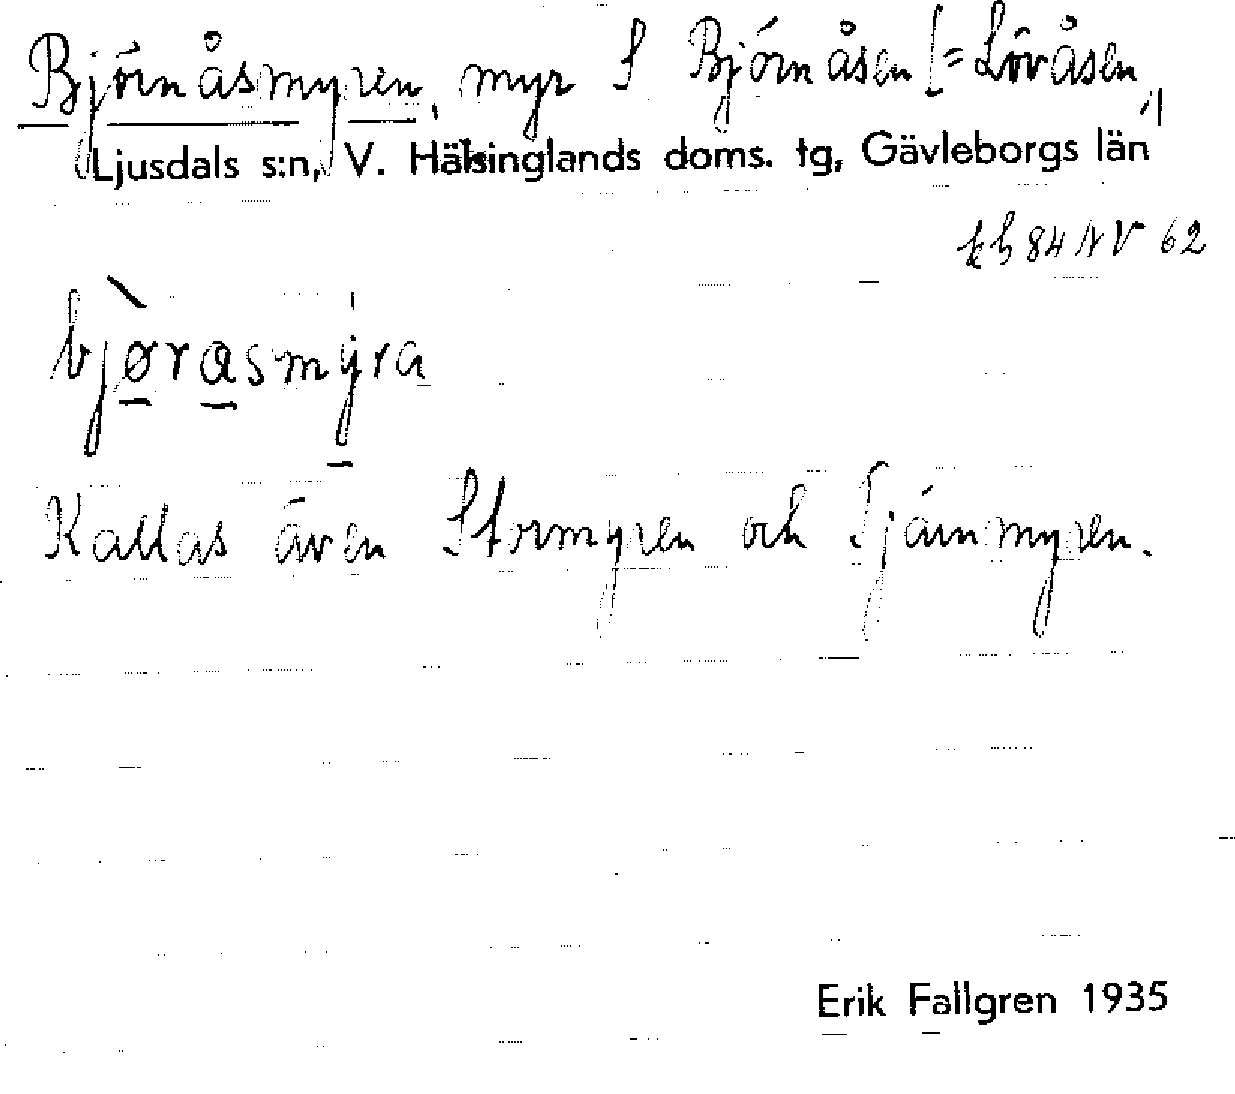 Björnåsmyren, myr S Björnåsen [= Lövåsen]
Ljusdals s:n, V. Hälsinglands doms. tg, Gävleborgs län
kb 84 NV 62
bjørasmyra
Kallas även Stormyren och Tjärnmyren.
Erik Fallgren 1935